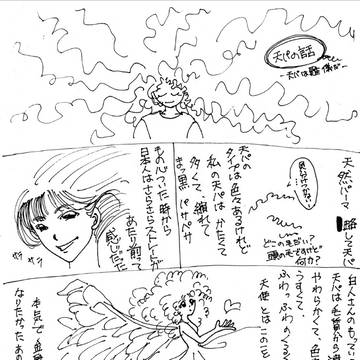 天パの話
～天パは難儀だ～
天然パーマ
略して天パ
どこの毛だい?
頭の毛ですけど
何か?
天パの
タイプは色々あるけれど
私の天パは かたくて
多くて、縮れて
まっ黒 パサパサ
もの心ついた時から
日本人はさらさらストレートが
あたり前って
感じだった
白人さんのもって
天パは毛質から
やわらかくて、色
うすくて、
ふわっふわのくる
天使とはこの
本気で
なりたかったあの